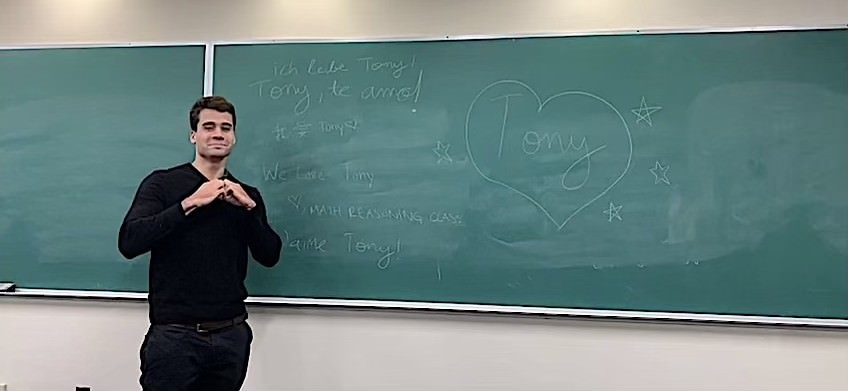 ich liebe Tony!
Tony, te amo!
我 Tony
We Love Tony
MATH REASONING CLASS
J'aime Tony!
Tony